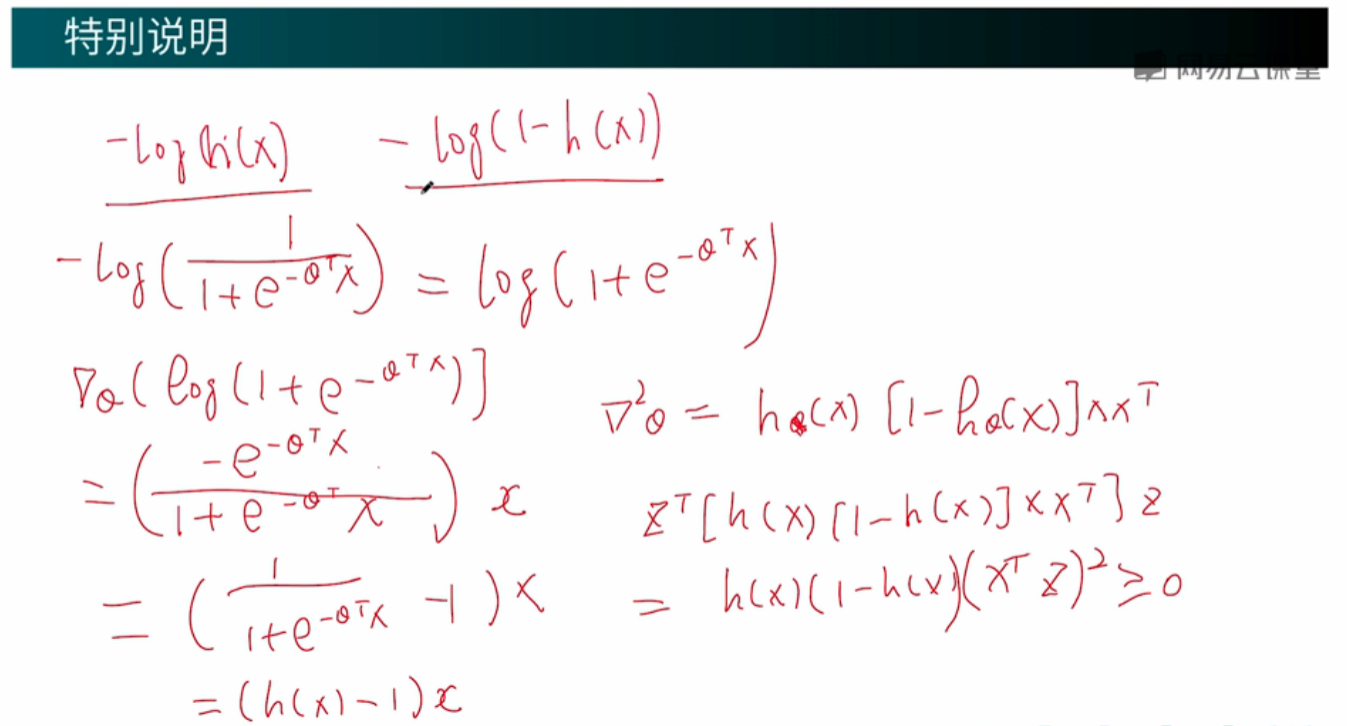 特别说明
网易云课堂
-log h(x) - log(1-h(x))
-log(1/(1+e^{-θ^T x})) = log(1+e^{-θ^T x})
∇_θ(log(1+e^{-θ^T x})]
= (-e^{-θ^T x}/(1+e^{-θ^T x})) x
= (1/(1+e^{-θ^T x}) -1)x
= (h(x)-1)x
∇²θ = h_θ(x) [1-h_θ(x)]xx^T
z^T[h(x)[1-h(x)]xx^T]z
= h(x)(1-h(x))(x^T z)² ≥ 0